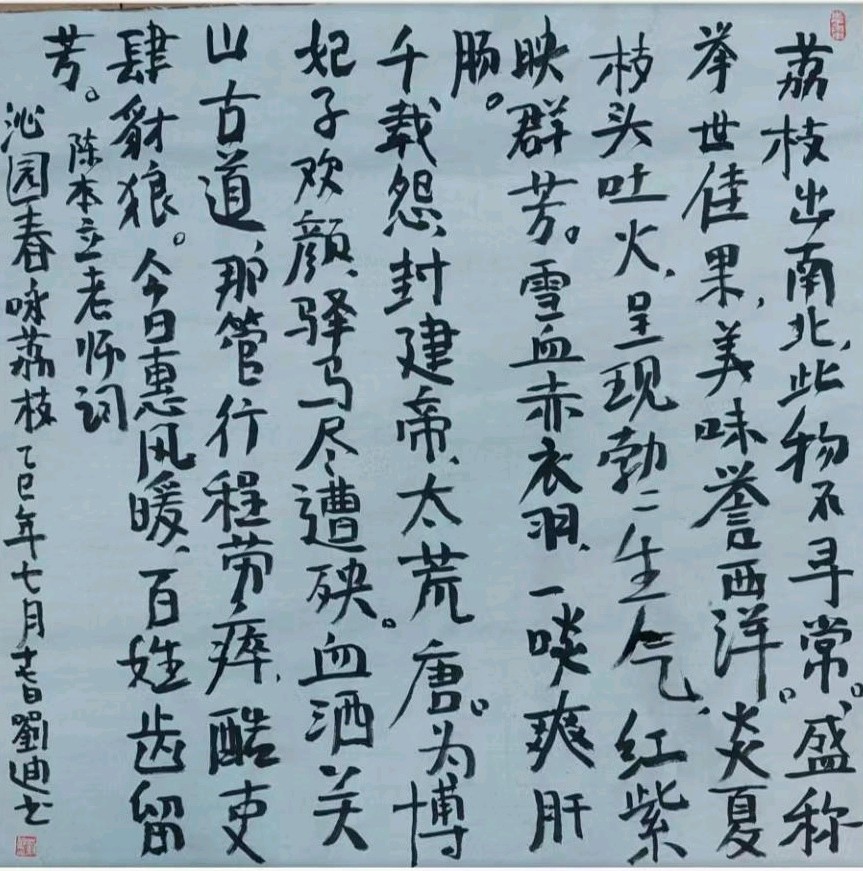 荔枝出南北，此物不寻常。盛称
举世佳果，美味誉西洋。炎夏
枝头吐火，呈现勃々生气，红紫
映群芳。雪血赤衣羽，一啖爽肝
肠。
千载怨，封建帝，太荒唐。为博
妃子欢颜，驿马尽遭殃。血洒关
山古道，那管行程劳瘁，酷吏
肆豺狼。今日惠风暖，百姓齿留
芳。陈本立老师词
沁园春咏荔枝 乙巳年七月十七日劉迪书